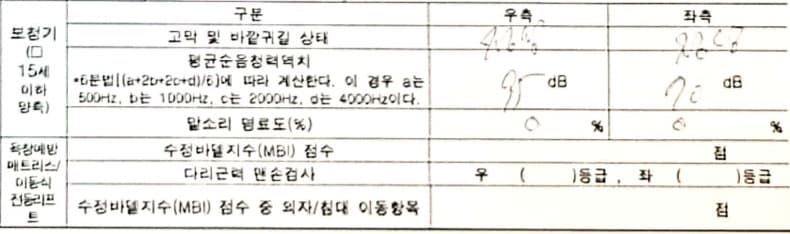 구분 우측 좌측
보청기
(□
15세
이하
양측)
고막 및 바깥귀길 상태
평균순음청력역치
*6분법[(a+2b+2c+d)/6]에 따라 계산한다. 이 경우 a는
500Hz, b는 1000Hz, c는 2000Hz, d는 4000Hz이다.
95 dB 90 dB
말소리 명료도(%) 0 % 0 %
욕창예방
매트리스/
이동식
전동리프
트
수정바델지수(MBI) 점수 점
다리근력 맨손검사 우 ( )등급, 좌 ( )등급
수정바델지수(MBI) 점수 중 의자/침대 이동항목 점